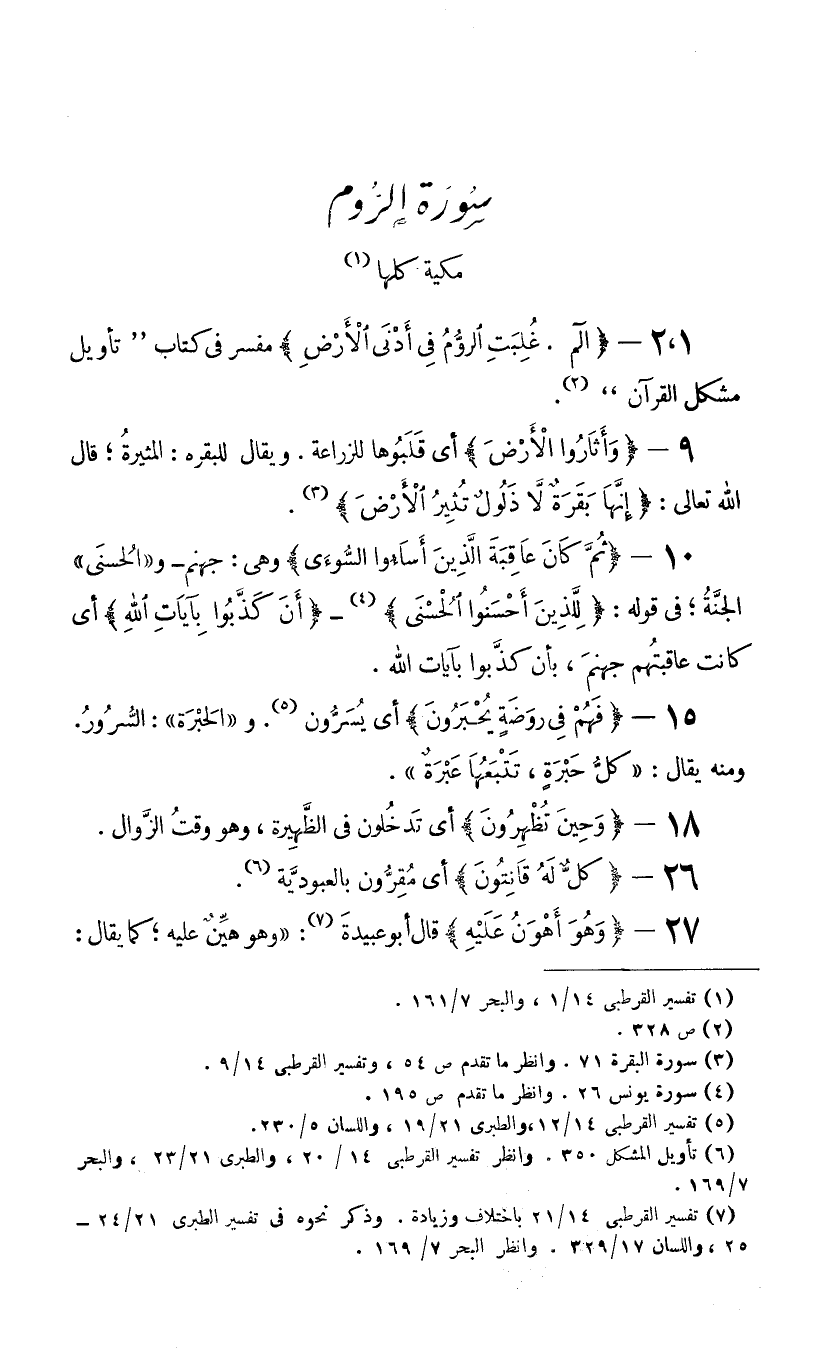 سُورَة الرُّوم
مكية كلها (١)
١، ٢ — ﴿ الٓمٓ . غُلِبَتِ ٱلرُّومُ فِي أَدْنَى ٱلْأَرْضِ ﴾ مفسر فى كتاب ” تأويل
مشكل القرآن “ (٢).
٩ — ﴿ وَأَثَارُوا الْأَرْضَ ﴾ أى قَلَبُوها للزراعة . ويقال للبقره : المثيرةُ ؛ قال
الله تعالى : ﴿ إِنَّهَا بَقَرَةٌ لَّا ذَلُولٌ تُثِيرُ ٱلْأَرْضَ ﴾ (٣) .
١٠ — ﴿ثُمَّ كَانَ عَاقِبَةَ الَّذِينَ أَسَاءُوا السُّوءَى﴾ وهى : جهنم ـ و«الْحسنَى»
الجنَّةُ ؛ فى قوله : ﴿ لِلَّذِينَ أَحْسَنُوا ٱلْحُسْنَى ﴾ (٤) ـ ﴿ أَنْ كَذَّبُوا بِآيَاتِ ٱللهِ ﴾ أى
كانت عاقبتُهم جهنمَ ، بأن كذَّبوا بآيات الله .
١٥ — ﴿ فَهُمْ فِي رَوضَةٍ يُحْبَرُونَ ﴾ أى يُسَرُّون (٥). و «الحَبْرَة» : السُّرورُ.
ومنه يقال : « كلُّ حَبْرَةٍ ، تَتْبَعُهَا عَبْرَةٌ » .
١٨ — ﴿ وَحِينَ تُظْهِرُونَ ﴾ أى تَدخُلون فى الظَّهِيرة ، وهو وقتُ الزَّوال .
٢٦ — ﴿ كلٌّ لَهُ قَانِتُونَ ﴾ أى مُقِرُّون بالعبوديَّة (٦).
٢٧ — ﴿ وَهُوَ أَهْوَنُ عَلَيْهِ ﴾ قال أبو عبيدةَ (٧): «وهو هيِّنٌ عليه ؛ كما يقال :
(١) تفسير القرطبى ١/١٤ ، والبحر ١٦١/٧ .
(٢) ص ٣٢٨ .
(٣) سورة البقرة ٧١ . وانظر ما تقدم ص ٥٤ ، وتفسير القرطبى ٩/١٤ .
(٤) سورة يونس ٢٦ . وانظر ما تقدم ص ١٩٥ .
(٥) تفسير القرطبى ١٢/١٤ ،والطبرى ١٩/٢١ ، واللسان ٢٣٠/٥.
(٦) تأويل المشكل ٣٥٠ . وانظر تفسير القرطبى ١٤/ ٢٠ ، والطبرى ٢٣/٢١ ، والبحر
١٦٩/٧ .
(٧) تفسير القرطبى ٢١/١٤ باختلاف وزيادة . وذكر نحوه فى تفسير الطبرى ٢٤/٢١ ـ
٢٥ ، واللسان ٣٢٩/١٧ . وانظر البحر ٧/ ١٦٩ .